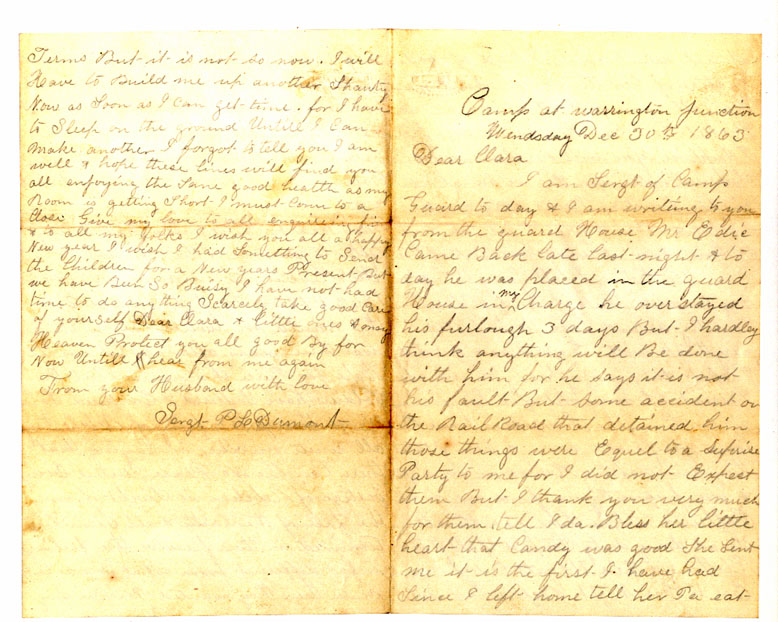 Camp at warrington junction
Wendsday Dec 30th 1863
Dear Clara
I am Sergt of Camp
Guard to day & I am writing to you
from the guard House Mr Edie
Came Back late last night & to
day he was placed in the guard
House in my Charge he over stayed
his furlough 3 days But I hardley
think anything will Be done
with him for he says it is not
his fault But some accident on
the Rail Road that detained him
those things were Equel to a Suprise
Party to me for I did not Expect
them But I thank you very much
for them tell Ida. Bless her little
heart that Candy was good She Sent
me it is the first I have had
Since I left home tell her Pa eat
Terms But it is not so now. I will
Have to Build me up another Shanty
Now as Soon as I Can get time. for I have
to Sleep on the ground Untill I Can
Make another I forgot to tell you I am
well & hope these lines will find you
all enjoying the Same good health as my
Room is getting Short I must Come to a
Close Give my love to all enquiring
& to all my folks I wish you all a happy
New year I wish I had Something to Send
the Children for a New years Present But
we have Bin So Buisy I have not had
time to do anything Scarcely take good Care
of yourself Dear Clara & little ones & may
Heaven Protect you all good By for
Now Untill hear from me again
From your Husband with love
Sergt P L Dumont